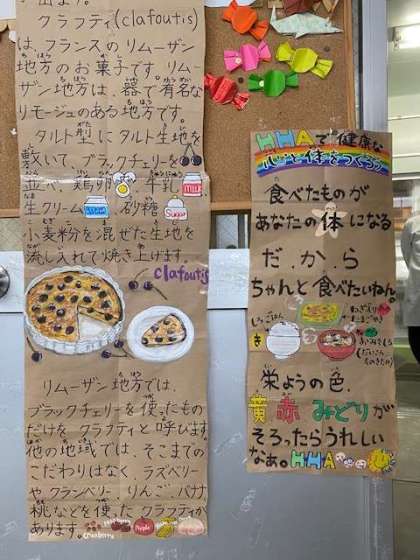 クラフティ(clafoutis)
は、フランスのリムーザン
地方のお菓子です。リムー
ザン地方は、器で有名な
リモージュのある地方です。
タルト型にタルト生地を
敷いて、ブラックチェリーを
並べ、鶏卵、牛乳、
生クリーム、砂糖、
小麦粉を混ぜた生地を
流し入れて焼き上げます。
clafoutis
リムーザン地方では、
ブラックチェリーを使ったもの
だけをクラフティと呼びます。
他の地域では、そこまでの
こだわりはなく、ラズベリー
やクランベリー、りんご、バナナ、
桃などを使ったクラフティが
あります。
HHAで健康な
心と体をつくろう
食べたものが
あなたの体になる
だ.か.ら
ちゃんと食べたいねん。
しろごはん
栄ようの色、
黄赤みどりが
そろったらうれしい
なぁ。HHA